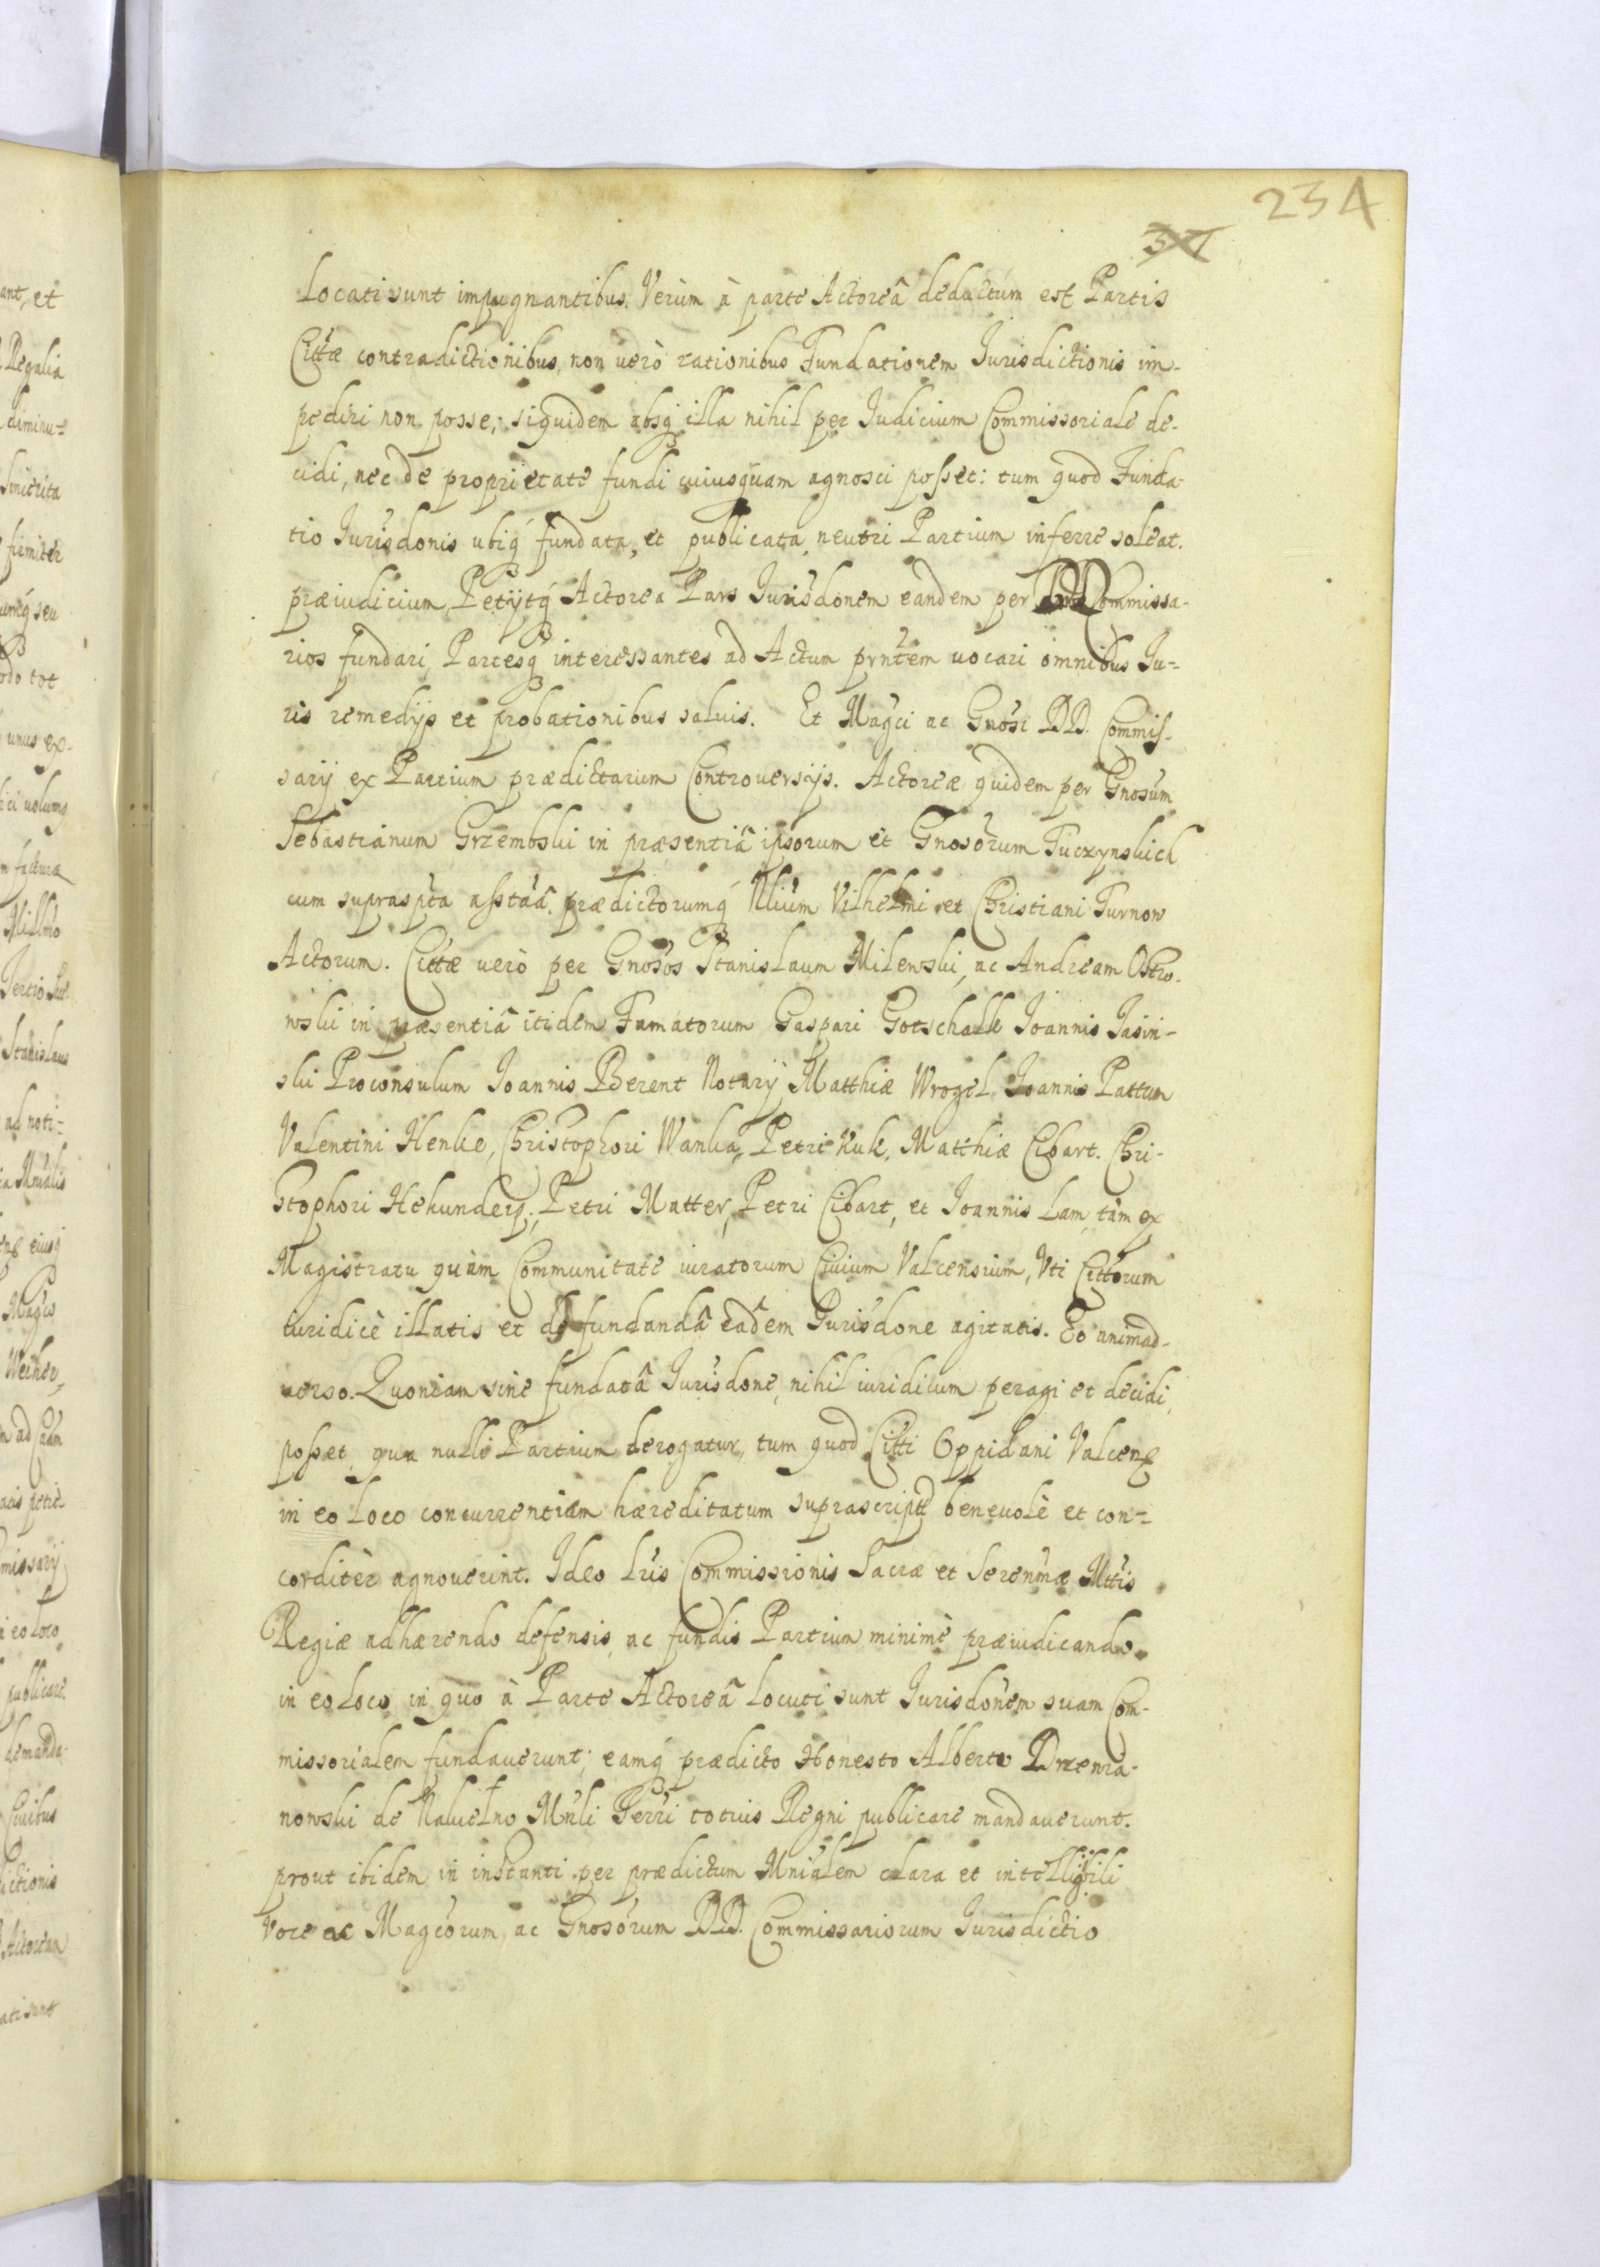 234
locati sunt impugnantibus. Verùm à parte Actoreâ deductum est Partis
Cittæ contradictionibus, non uerò rationibus Fundationem Jurisdictionis im-
pediri non posse; siquidem absq illa nihil per Judicium Commissoriale de-
cidi, nec de proprietate fundi cuiusquam agnosci posset: tum quod Funda-
tio Jurisdonis ubiq fundata, et publicata neutri Partium inferre soleat.
præiudicium, Petijtq Actorea Pars Jurisdonem eandem per DD Commissa-
rios fundari, Partesq interessantes ad Actum prntem uocari omnibus Ju-
ris remedijs et probationibus saluis. Et Magci ac Gnosi DD. Commis-
sarij ex Partium prædictarum Controuersijs. Actoreæ quidem per Gnosum
Sebastianum Grzembski in præsentiâ ipsorum et Gnosorum Tuczynskich
cum suprasptâ assta prædictorumq Nlium Vilhelmi et Christiani Turnow
Actorum. Cittæ uerò per Gnosos Stanislaum Milewski, ac Andream Ostro-
wski in præsentiâ itidem Famatorum Gaspari Gotschalk Joannis Jasin-
ski Proconsulum Joannis Berent Notarij Matthiæ Wrogel, Joannis Pattun
Valentini Henke, Christophori Wanka, Petri Kuk, Matthiæ Cibart. Chri-
stophori Hekundery, Petri Matter, Petri Cibart, et Joannis Lam, tàm ex
Magistratu quàm Communitate iuratorum Ciuium Valcensium, Vti Cittorum
iuridicè illatis et de fundandâ eâdem Jurisdone agitatis. Eo animad-
uerso. Quoniam sine fundatâ Jurisdone, nihil iuridicum peragi et decidi,
posset, qua nulli Partium derogatur, tum quod Citti Oppidani Valcens
in eo loco concurrentiam hæreditatum suprascript beneuolè et con-
corditèr agnouerint. Ideo Lris Commissionis Sacræ et Serenmæ Mttis
Regiæ adhærendo defensis, ac fundis Partium minimè præiudicando.
in eo loco in quo à Parte Actoreâ locuti sunt Jurisdonem suam Com-
missorialem fundauerunt; eamq prædicto Honesto Alberto Drzewia-
nowski de Nakielno Mnli Gerri totius Regni publicare mandauerunt.
prout ibidem in instanti per prædictum Mnialem clara et intelligibili
Voce ac Magcorum, ac Gnosorum DD. Commissariorum Jurisdictio